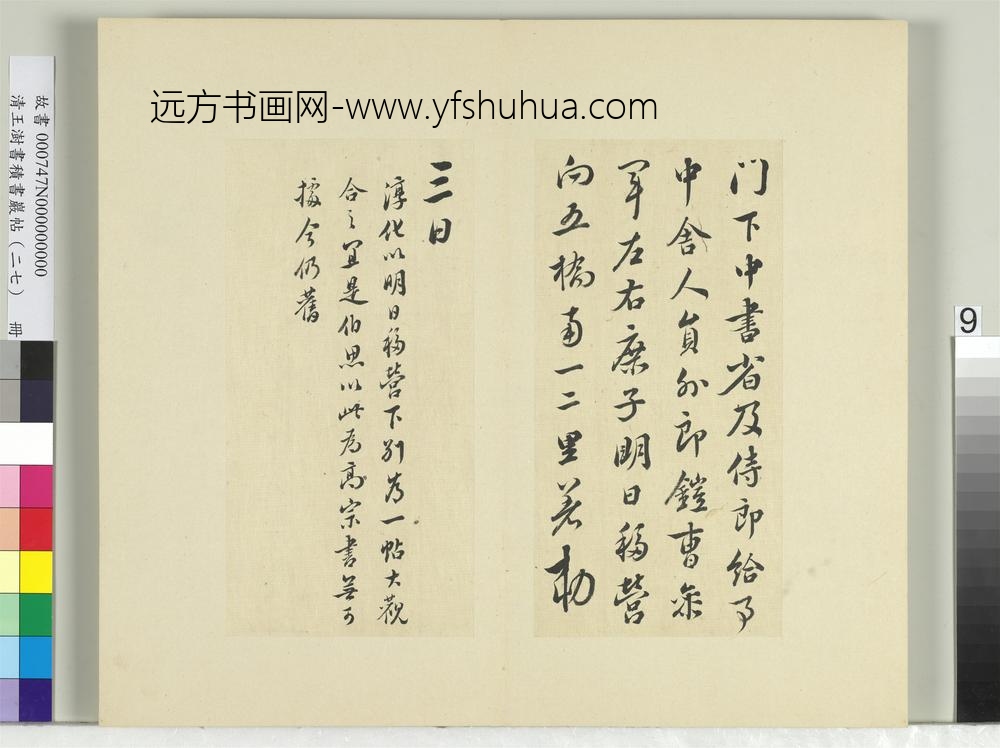 远方书画网-www.yfshuhua.com
门下中書省及侍郎給事
中舍人員外郎鎧曹參
軍左右庶子明日移營
向五橋南一二里著勅
三日
淳化以明日移營下別為一帖大觀
合之宜是伯思以此為高宗書無可
據今仍舊
故書 000747N000000000
清王澍書積書巖帖(二七) 冊
9